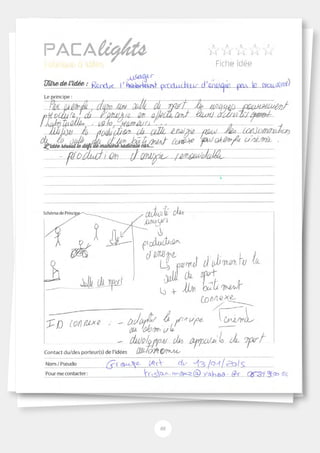 PACAlights
Fabrique à idées
Fiche idée
usager
Titre de l'idée : Rendre l' producteur d'énergie par le mouvement
Le principe :
Par exemple, dans une salle de sport, les usagers pourraient
produire de l'énergie en effectuant leurs activités
habituelles : vélo, rameurs...
Utiliser la production de cette énergie pour les consommations
de la salle de d'un bâtiment connexe par exemple cinéma.
L'idée résout le défi de manière radicale car...
- production d'énergie renouvelable
Schéma de Principe
activité des
usagers
production
d'énergie
permet d'alimenter la
salle de sport
+ Un bâtiment
connexe
Salle de sport
cinéma
ID connexe : - adapter le principe
au domicile
- développer des appareils de sport
autonome
Contact du/des porteur(s) de l'idées
Nom / Pseudo Groupe vert du 13/01/2015
Pour me contacter :
88